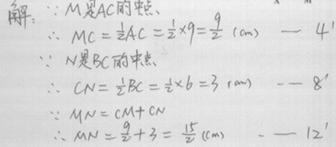 解: ∵ M是AC的中点、
∴ MC = ½AC = ½×9 = 9/2 (cm) — 4'
∵ N是BC的中点、
∴ CN = ½BC = ½×6 = 3 (cm) — 8'
∵ MN = CM + CN
∴ MN = 9/2 + 3 = 15/2 (cm) — 12'